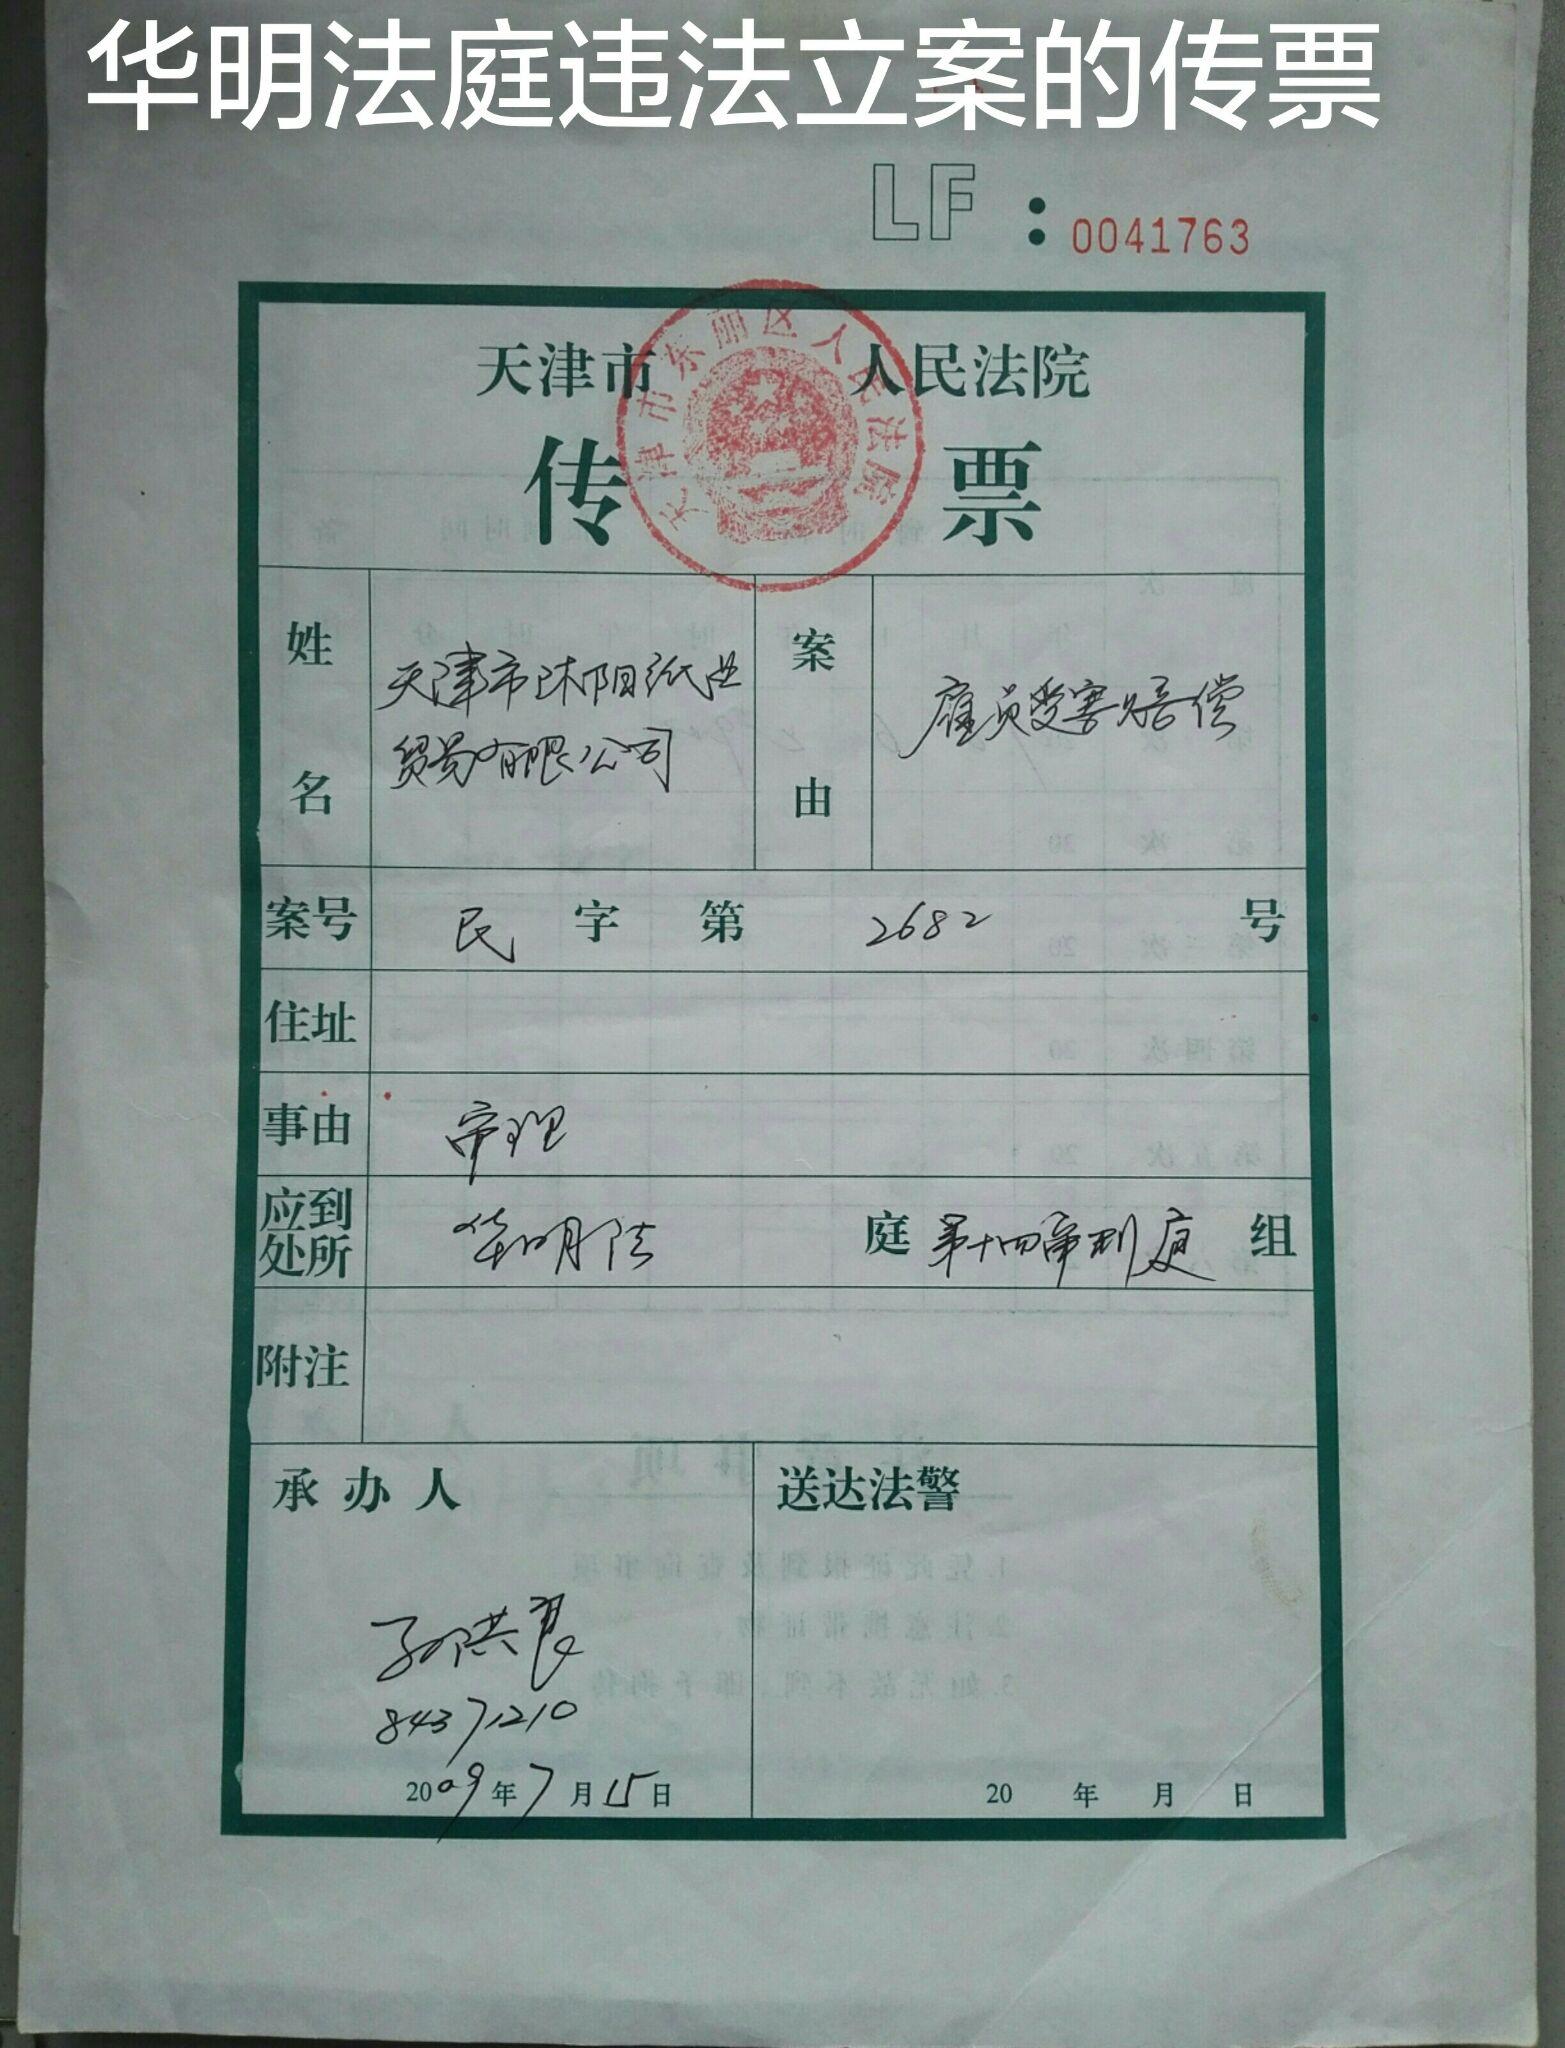 华明法庭违法立案的传票
LF：0041763
天津市 人民法院
天津市东丽区人民法院
传 票
姓名
天津市沐阳纸业
贸易有限公司
案由
雇员受害赔偿
案号 民 字 第 2682 号
住址
事由 审理
应到处所 华明法 庭 第十四审判庭 组
附注
承办人
孙洪良
84371210
2009年7月15日
送达法警
20 年 月 日